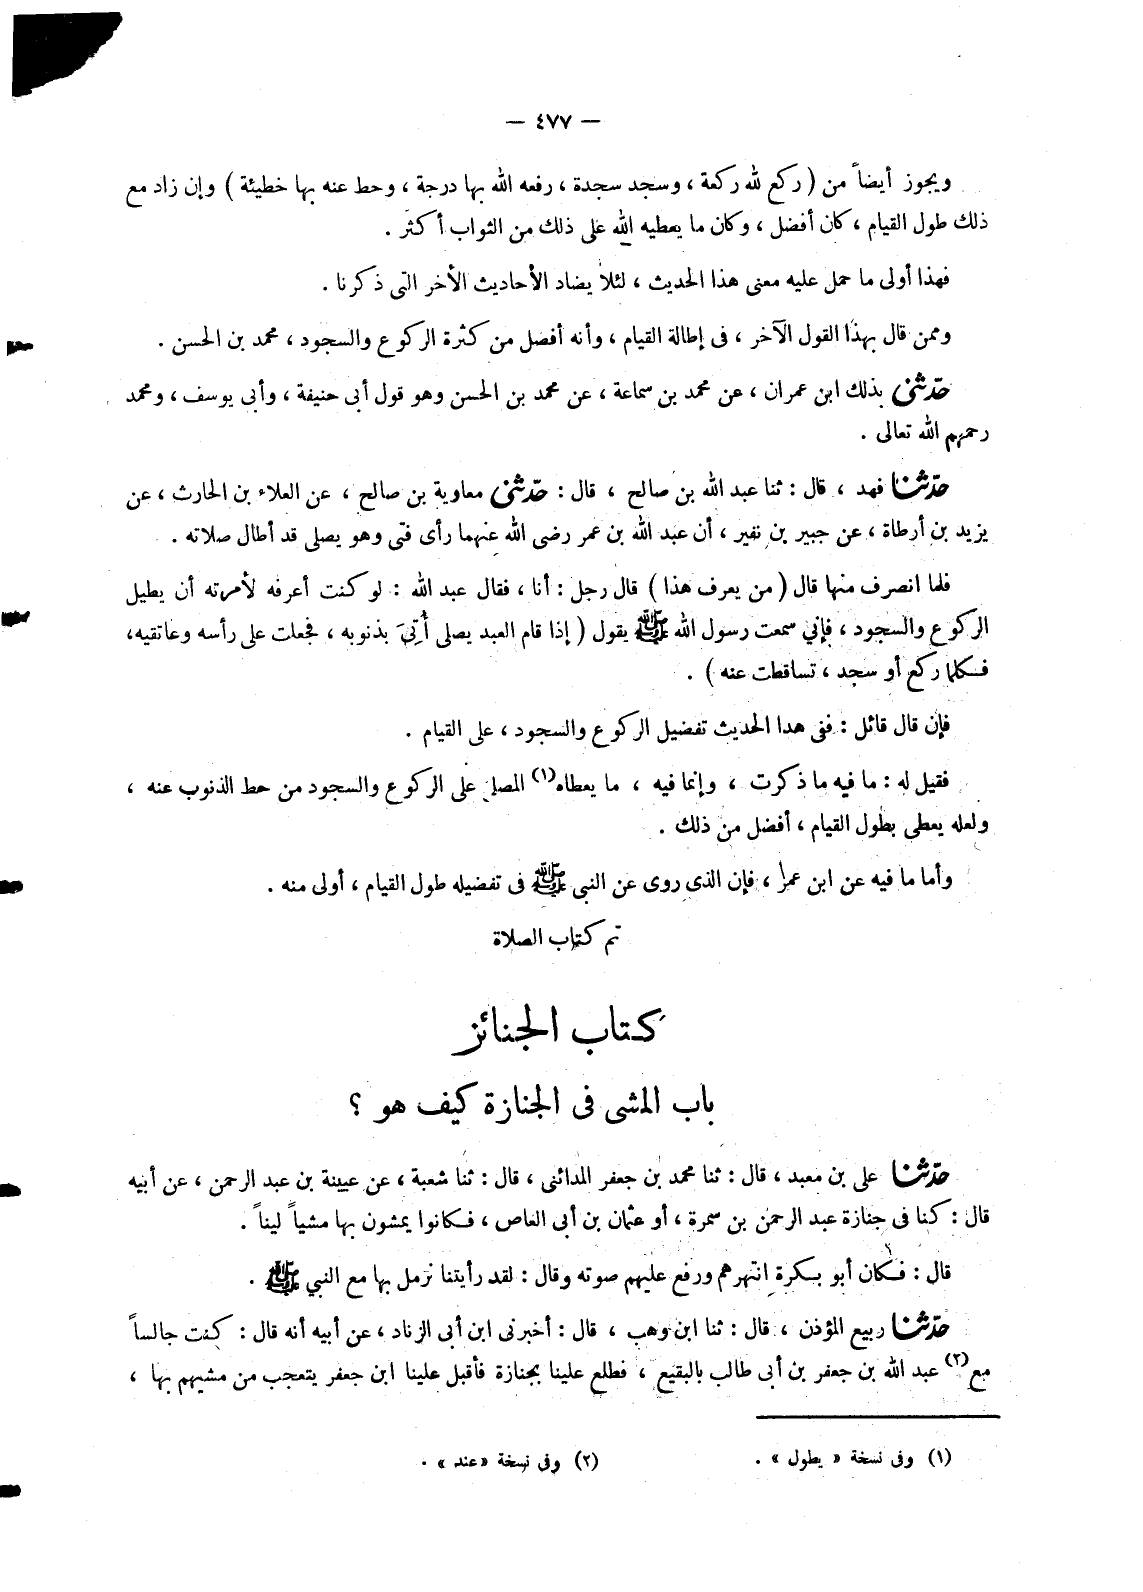 — ٤٧٧ —
ويجوز أيضاً من ( ركع لله ركعة ، وسجد سجدة ، رفعه الله بها درجة ، وحط عنه بها خطيئة ) وإن زاد مع
ذلك طول القيام ، كان أفضل ، وكان ما يعطيه الله على ذلك من الثواب أكثر .
فهذا أولى ما حمل عليه معنى هذا الحديث ، لئلا يضاد الأحاديث الأخر التى ذكرنا .
وممن قال بهذا القول الآخر ، فى إطالة القيام ، وأنه أفضل من كثرة الركوع والسجود ، محمد بن الحسن .
حدّثنى بذلك ابن عمران ، عن محمد بن سماعة ، عن محمد بن الحسن وهو قول أبى حنيفة ، وأبى يوسف ، ومحمد
رحمهم الله تعالى .
حدّثنا فهد ، قال : ثنا عبد الله بن صالح ، قال : حدّثنى معاوية بن صالح ، عن العلاء بن الحارث ، عن
يزيد بن أرطاة ، عن جبير بن نفير ، أن عبد الله بن عمر رضى الله عنهما رأى فتى وهو يصلى قد أطال صلاته .
فلما انصرف منها قال ( من يعرف هذا ) قال رجل : أنا ، فقال عبد الله : لو كنت أعرفه لأمرته أن يطيل
الركوع والسجود ، فإني سمعت رسول الله ﷺ يقول ( إذا قام العبد يصلى أُتِىَ بذنوبه ، فجعلت على رأسه وعاتقيه ،
فكلما ركع أو سجد ، تساقطت عنه ) .
فإن قال قائل : ففى هدا الحديث تفضيل الركوع والسجود ، على القيام .
فقيل له : ما فيه ما ذكرت ، وإنما فيه ، ما يعطاه(١) المصلى على الركوع والسجود من حط الذنوب عنه ،
ولعله يعطى بطول القيام ، أفضل من ذلك .
وأما ما فيه عن ابن عمر ، فإن الذى روى عن النبى ﷺ فى تفضيله طول القيام ، أولى منه .
تم كتاب الصلاة
كتاب الجنائز
باب المشى فى الجنازة كيف هو ؟
حدّثنا على بن معبد ، قال : ثنا محمد بن جعفر المدائنى ، قال : ثنا شعبة ، عن عيينة بن عبد الرحمن ، عن أبيه
قال : كنا فى جنازة عبد الرحمن بن سمرة ، أو عثمان بن أبى العاص ، فكانوا يمشون بها مشياً ليناً .
قال : فكان أبو بكرة انتهرهم ورفع عليهم صوته وقال : لقد رأيتنا نرمل بها مع النبي ﷺ .
حدّثنا ربيع المؤذن ، قال : ثنا ابن وهب ، قال : أخبرنى ابن أبى الزناد ، عن أبيه أنه قال : كنت جالساً
مع(٢) عبد الله بن جعفر بن أبى طالب بالبقيع ، فطلع علينا بجنازة فأقبل علينا ابن جعفر يتعجب من مشيهم بها ،
(١) وفى نسخة « يطول » .
(٢) وفى نسخة «عند » .